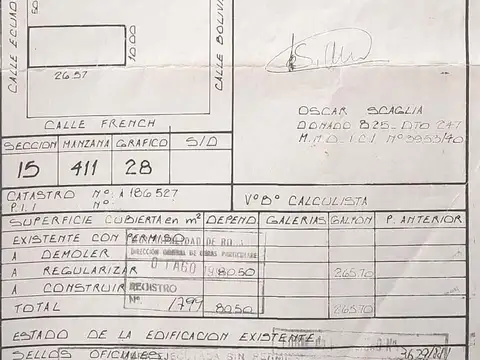 CALLE ECUAD
50
10.00
26.57
CALLE BOLIVA
CALLE FRENCH
OSCAR SCAGLIA
DONADO 825. DTO 247
M.M.O. I.C.I Nº 3953/40
SECCION MANZANA GRAFICO S/D
15 411 28
CATASTRO Nº. A 186527
P.I.I Nº.
VºBº CALCULISTA
SUPERFICIE CUBIERTA en m² DEPEND GALERIAS GALPON P. ANTERIOR
EXISTENTE CON PERMISO
DIRECCION GENERAL DE OBRAS PARTICULARES
A DEMOLER
A REGULARIZAR 80.50 265.70
AGO
A CONSTRUIR
REGISTRO
Nº /799
TOTAL 80.50 265.70
ESTADO DE LA EDIFICACION EXISTENTE
SELLOS OFICIALES